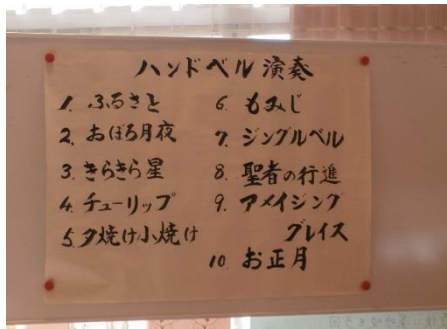 ハンドベル演奏
1. ふるさと
2. おぼろ月夜
3. きらきら星
4. チューリップ
5. 夕焼け小焼け
6. もみじ
7. ジングルベル
8. 聖者の行進
9. アメイジング
グレイス
10. お正月